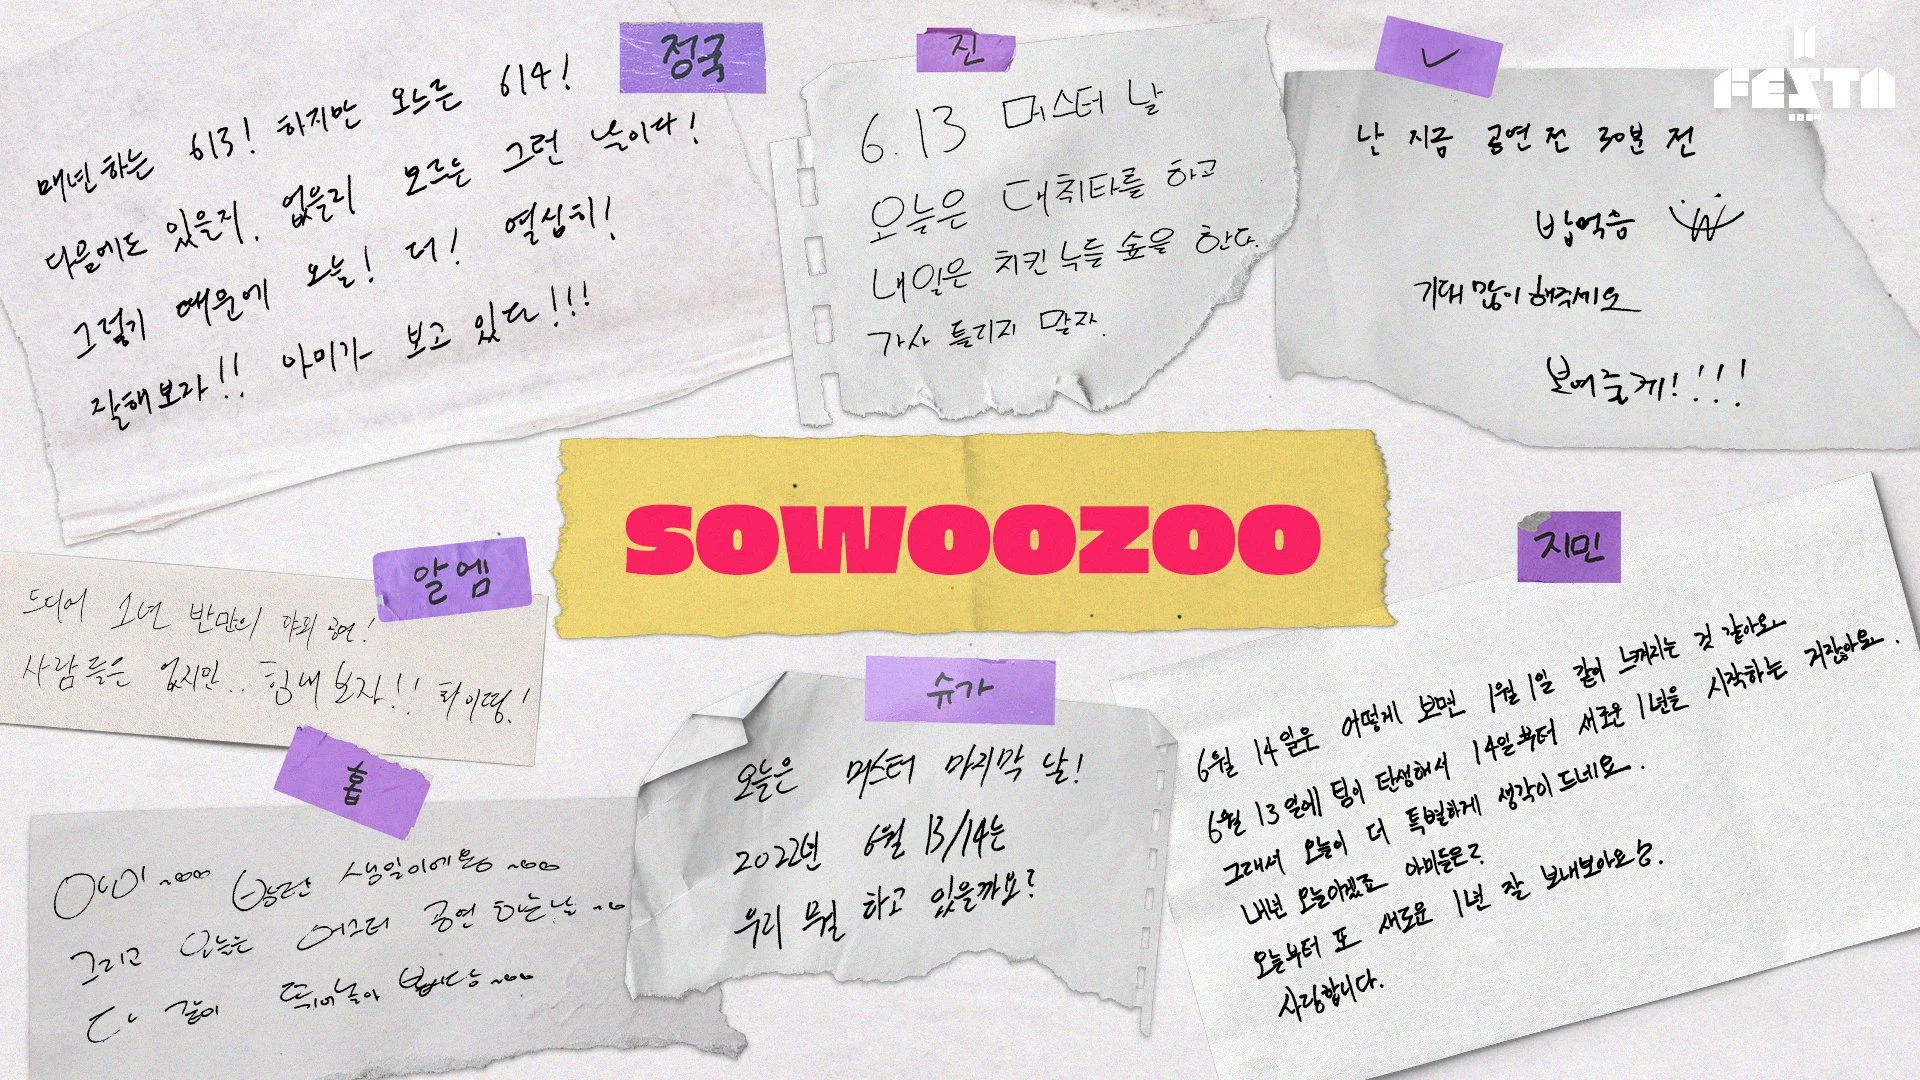 정국
매년 하는 613! 하지만 오느른 614!
다음에도 있을지, 없을지 모르는 그런 날이다!
그렇기 때문에 오늘! 더! 열심히!
잘해보자!! 아미가 보고 있다!!!
진
6.13 머스터 날
오늘은 대취타를 하고
내일은 치킨 누들 숲을 한다.
가사 틀리지 말자.
V
난 지금 공연 전 30분 전
밥먹승
기대 많이 해주세요
보여줄게!!!!
FESTA
SOWOOZOO
알엠
드디어 1년 반만의 야외 공연!
사람들은 없지만.. 힘내보자!! 화이띵!
지민
6월 14일은 어떻게 보면 1월 1일 같이 느껴지는 것 같아요
6월 13일에 팀이 탄생해서 14일부터 새로운 1년을 시작하는 거잖아요.
그래서 오늘이 더 특별하게 생각이 드네요.
내년 오늘이겠죠 아미들은?
오늘부터 또 새로운 1년 잘 보내보아요.
사랑합니다.
슈가
오늘은 머스터 마지막 날!
2022년 6월 13/14는
우리 뭘 하고 있을까요?
홉
생일이에용~
그리고 오늘은 머스터 공연하는 날~
더 같이 뛰어놀아 봅시당~